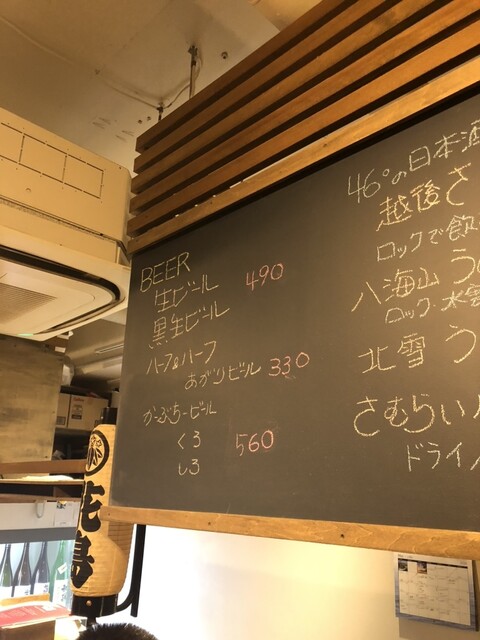 BEER
生ビール 490
黒生ビール
ハーフ&ハーフ
あがりビール 330
がーぶちービール
くろ 560
しろ
46°の日本酒
越後さ
ロックで飲
八海山 う
ロック・水
北雪 う
さむらい
ドライ
花鳥